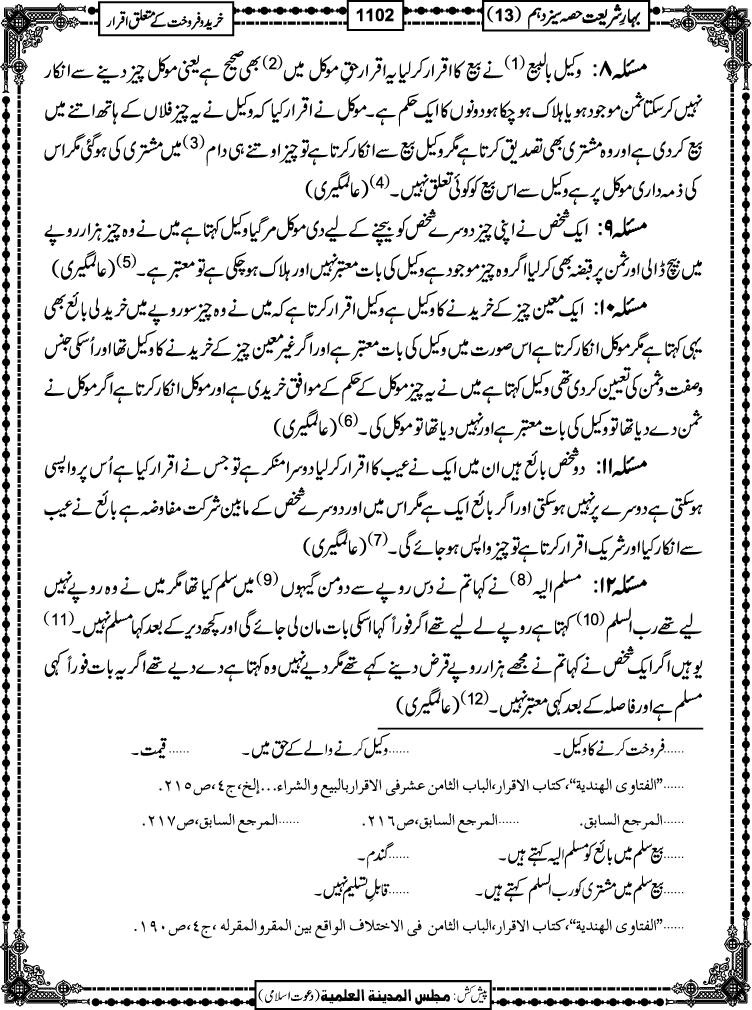 بہارِ شریعت حصہ سیزدہم (13)
1102
خرید و فروخت کے متعلق اقرار
مسئلہ ۸: وکیل بالبیع (1) نے بیع کا اقرار کرلیا یہ اقرار حقِ موکل میں (2) بھی صحیح ہے یعنی موکل چیز دینے سے انکار
نہیں کرسکتا ثمن موجود ہو یا ہلاک ہوچکا ہو دونوں کا ایک حکم ہے۔ موکل نے اقرار کیا کہ وکیل نے یہ چیز فلاں کے ہاتھ اتنے میں
بیع کردی ہے اور وہ مشتری بھی تصدیق کرتا ہے مگر وکیل بیع سے انکار کرتا ہے تو چیز اوتنے ہی دام (3) میں مشتری کی ہوگئی مگر اس
کی ذمہ داری موکل پر ہے وکیل سے اس بیع کو کوئی تعلق نہیں۔ (4) (عالمگیری)
مسئلہ ۹: ایک شخص نے اپنی چیز دوسرے شخص کو بیچنے کے لیے دی موکل مرگیا وکیل کہتا ہے میں نے وہ چیز ہزار روپے
میں بیچ ڈالی اور ثمن پر قبضہ بھی کرلیا اگر وہ چیز موجود ہے وکیل کی بات معتبر نہیں اور ہلاک ہوچکی ہے تو معتبر ہے۔ (5) (عالمگیری)
مسئلہ ۱۰: ایک معین چیز کے خریدنے کا وکیل ہے وکیل اقرار کرتا ہے کہ میں نے وہ چیز سو روپے میں خرید لی بائع بھی
یہی کہتا ہے مگر موکل انکار کرتا ہے اس صورت میں وکیل کی بات معتبر ہے اور اگر غیر معین چیز کے خریدنے کا وکیل تھا اور اُسکی جنس
وصفت و ثمن کی تعیین کردی تھی وکیل کہتا ہے میں نے یہ چیز موکل کے حکم کے موافق خریدی ہے اور موکل انکار کرتا ہے اگر موکل نے
ثمن دے دیا تھا تو وکیل کی بات معتبر ہے اور نہیں دیا تھا تو موکل کی۔ (6) (عالمگیری)
مسئلہ ۱۱: دو شخص بائع ہیں ان میں ایک نے عیب کا اقرار کرلیا دوسرا منکر ہے تو جس نے اقرار کیا ہے اُس پر واپسی
ہوسکتی ہے دوسرے پر نہیں ہوسکتی اور اگر بائع ایک ہے مگر اس میں اور دوسرے شخص کے مابین شرکت مفاوضہ ہے بائع نے عیب
سے انکار کیا اور شریک اقرار کرتا ہے تو چیز واپس ہوجائے گی۔ (7) (عالمگیری)
مسئلہ ۱۲: مسلم الیہ (8) نے کہا تم نے دس روپے سے دو من گیہوں (9) میں سلم کیا تھا مگر میں نے وہ روپے نہیں
لیے تھے رب السلم (10) کہتا ہے روپے لے لیے تھے اگر فوراً کہا اسکی بات مان لی جائے گی اور کچھ دیر کے بعد کہا مسلم نہیں۔ (11)
یوہیں اگر ایک شخص نے کہا تم نے مجھے ہزار روپے قرض دینے کہے تھے مگر دیے نہیں وہ کہتا ہے دے دیے تھے اگر یہ بات فوراً کہی
مسلم ہے اور فاصلہ کے بعد کہی معتبر نہیں۔ (12) (عالمگیری)
......فروخت کرنے کا وکیل۔ ......وکیل کرنے والے کے حق میں۔ ......قیمت۔
......”الفتاوى الهندية“، كتاب الاقرار، الباب الثامن عشر فى الاقرار بالبيع والشراء...إلخ، ج٤، ص٢١٥.
......المرجع السابق. ......المرجع السابق، ص٢١٦. ......المرجع السابق، ص٢١٧.
......بیع سلم میں بائع کو مسلم الیہ کہتے ہیں۔ ......گندم۔
......بیع سلم میں مشتری کو رب السلم کہتے ہیں۔ ......قابلِ تسلیم نہیں۔
......”الفتاوى الهندية“، كتاب الاقرار، الباب الثامن فى الاختلاف الواقع بين المقر والمقرله، ج٤، ص١٩٠.
پیش کش: مجلس المدينة العلمية (دعوت اسلامی)